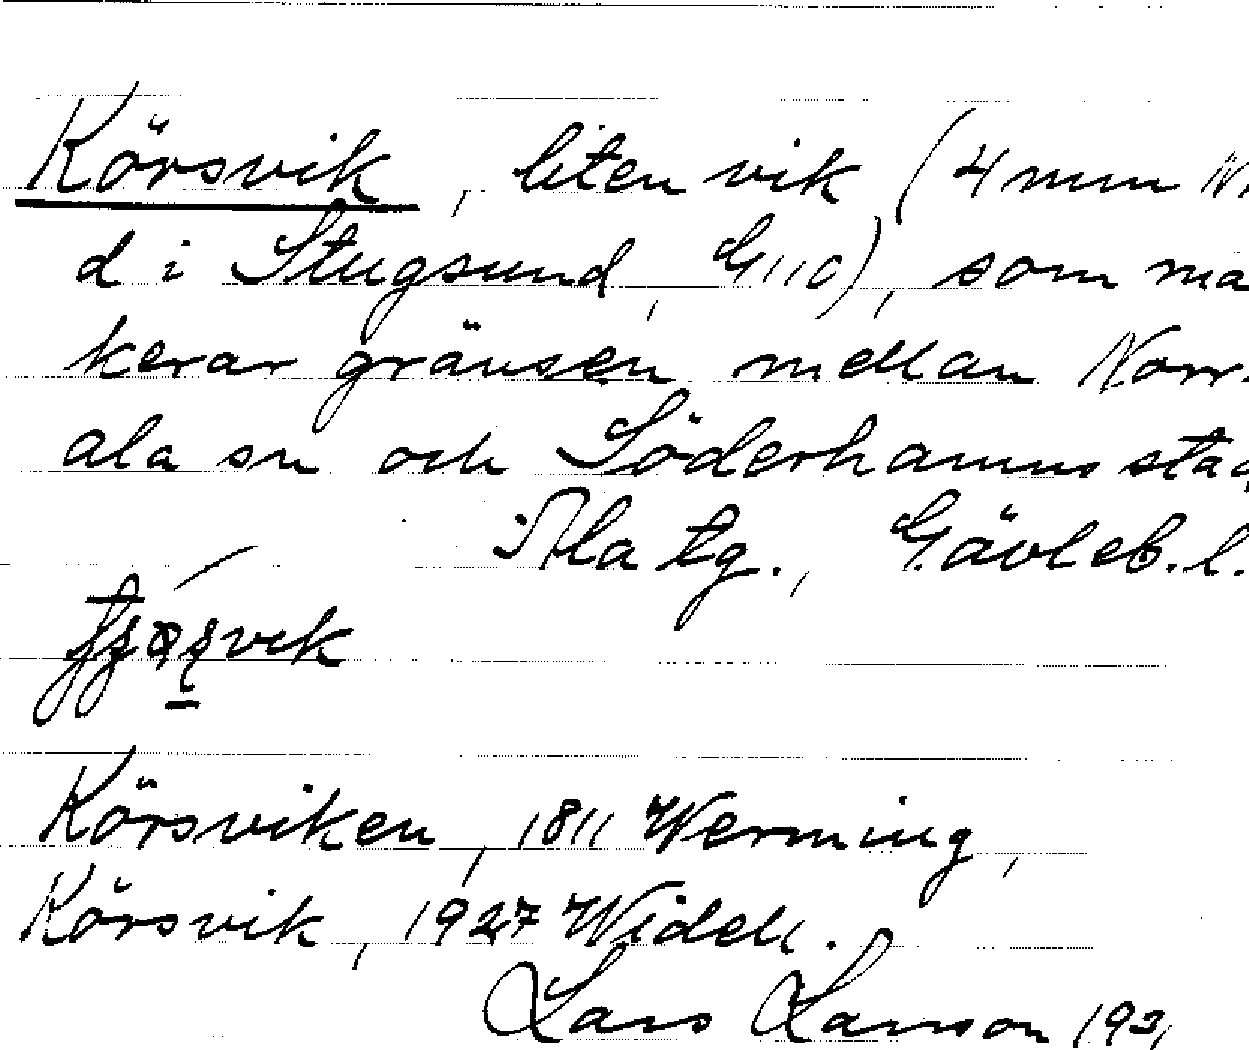 Körsvik, liten vik (4 mm N
d i Stugsund, G110), som ma
kerar gränsen mellan Norr-
ala sn och Söderhamns stad
Ala tg., Gävleb. l.
Körsviken, 1811 Werming,
Körsvik, 1927 Widell.
Lars Larsson 193